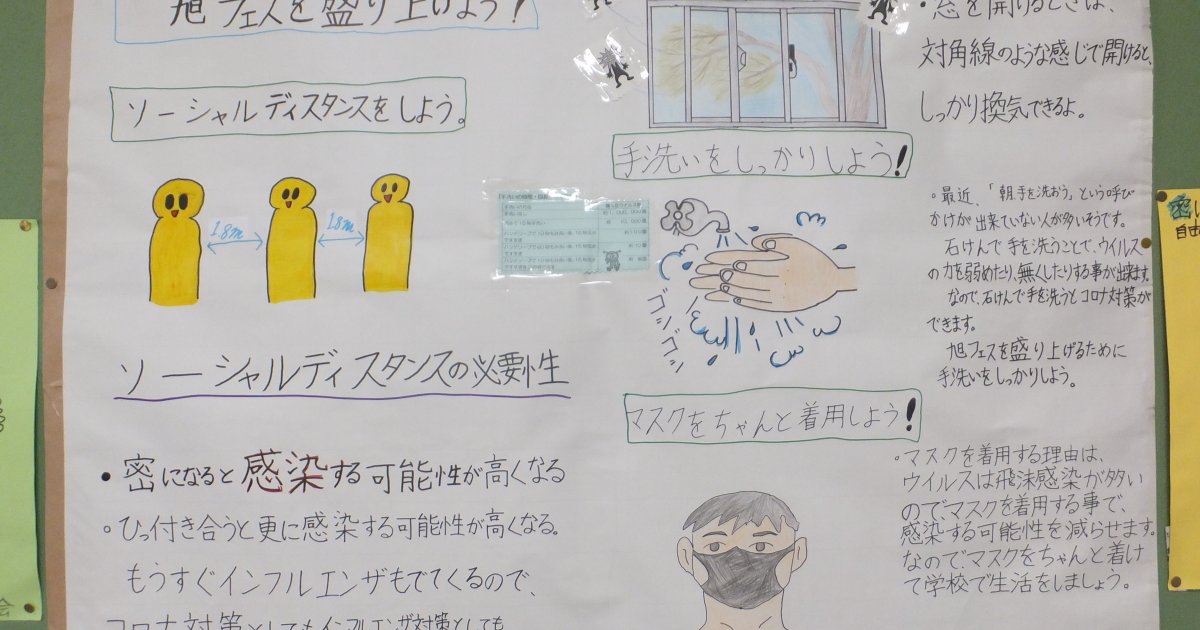 旭フェスを盛り上げよう!
ソーシャルディスタンスをしよう。
1.8m
1.8m
ソーシャルディスタンスの必要性
・密になると感染する可能性が高くなる
○ひっ付き合うと更に感染する可能性が高くなる。
もうすぐインフルエンザもでてくるので、
コロナ対策としてもインフルエンザ対策としても
・窓を開けるときは、
対角線のような感じで開けると、
しっかり換気できるよ。
手洗いをしっかりしよう!
ゴシゴシゴシ
○最近、「朝手を洗おう。」という呼び
かけが出来ていない人が多いそうです。
石けんで手を洗うことで、ウイルス
の力を弱めたり、無くしたりする事が出来ます。
なので、石けんで手を洗うとコロナ対策が
できます。
旭フェスを盛り上げるために
手洗いをしっかりしよう。
マスクをちゃんと着用しよう!
○マスクを着用する理由は、
ウイルスは飛沫感染が多い
のでマスクを着用する事で、
感染する可能性を減らせます。
なので、マスクをちゃんと着け
て学校で生活をしましょう。
密
自由
会